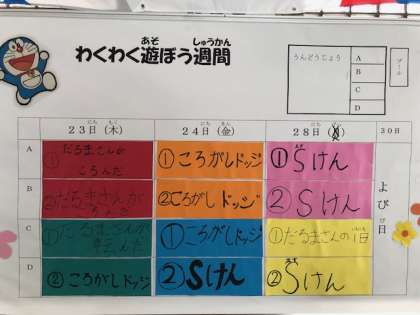 わくわく遊ぼう週間
あそ
しゅうかん
うんどうじょう
A
B
C
D
プール
23日(木)
24日(金)
28日
30日
A
①だるまさんが
ころんだ
①ころがしドッジ
①Sけん
B
②だるまさんが
ころんだ
②ころがしドッジ
②Sけん
よび日
C
①だるまさんが
ころんだ
①ころがしドッジ
①だるまさんの1日
D
②ころがしドッジ
②Sけん
②Sけん